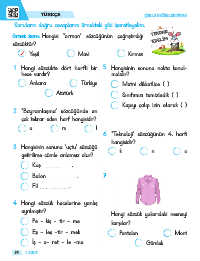 TÜRKÇE
Soruların doğru cevaplarını örnekteki gibi işaretleyelim.
Örnek Soru: Hangisi "orman" sözcüğünün çağrıştırdığı
sözcüktür?
Yeşil
Mavi
Kırmızı
1 Hangi sözcükte dört harfli bir
hece vardır?
Ankara
Türkiye
Atatürk
2 "Bayramlaşma" sözcüğünde en
çok tekrar eden harf hangisidir?
a
m
l
3 Hangisinin sonuna "uçtu" sözcüğü
getirilirse cümle anlamsız olur?
Kuş
Balon
Fil
4 Hangi sözcük hecelerine yanlış
ayrılmıştır?
Pe - kiş - tir - me
Es - kes - tir - mek
İş - a- ret - le -me
5 Hangisinin sonuna nokta konul-
malıdır?
Metni dikkatlice ( )
Sınıfımızı temizledi ( )
Kapıyı çalıp izin alarak ( )
6 "Teknoloji" sözcüğünün 4. harfi
hangisidir?
k
n
o
7
Hangi sözcük yukarıdaki resmeyi
karşılar?
Pantolon
Mont
Gömlek